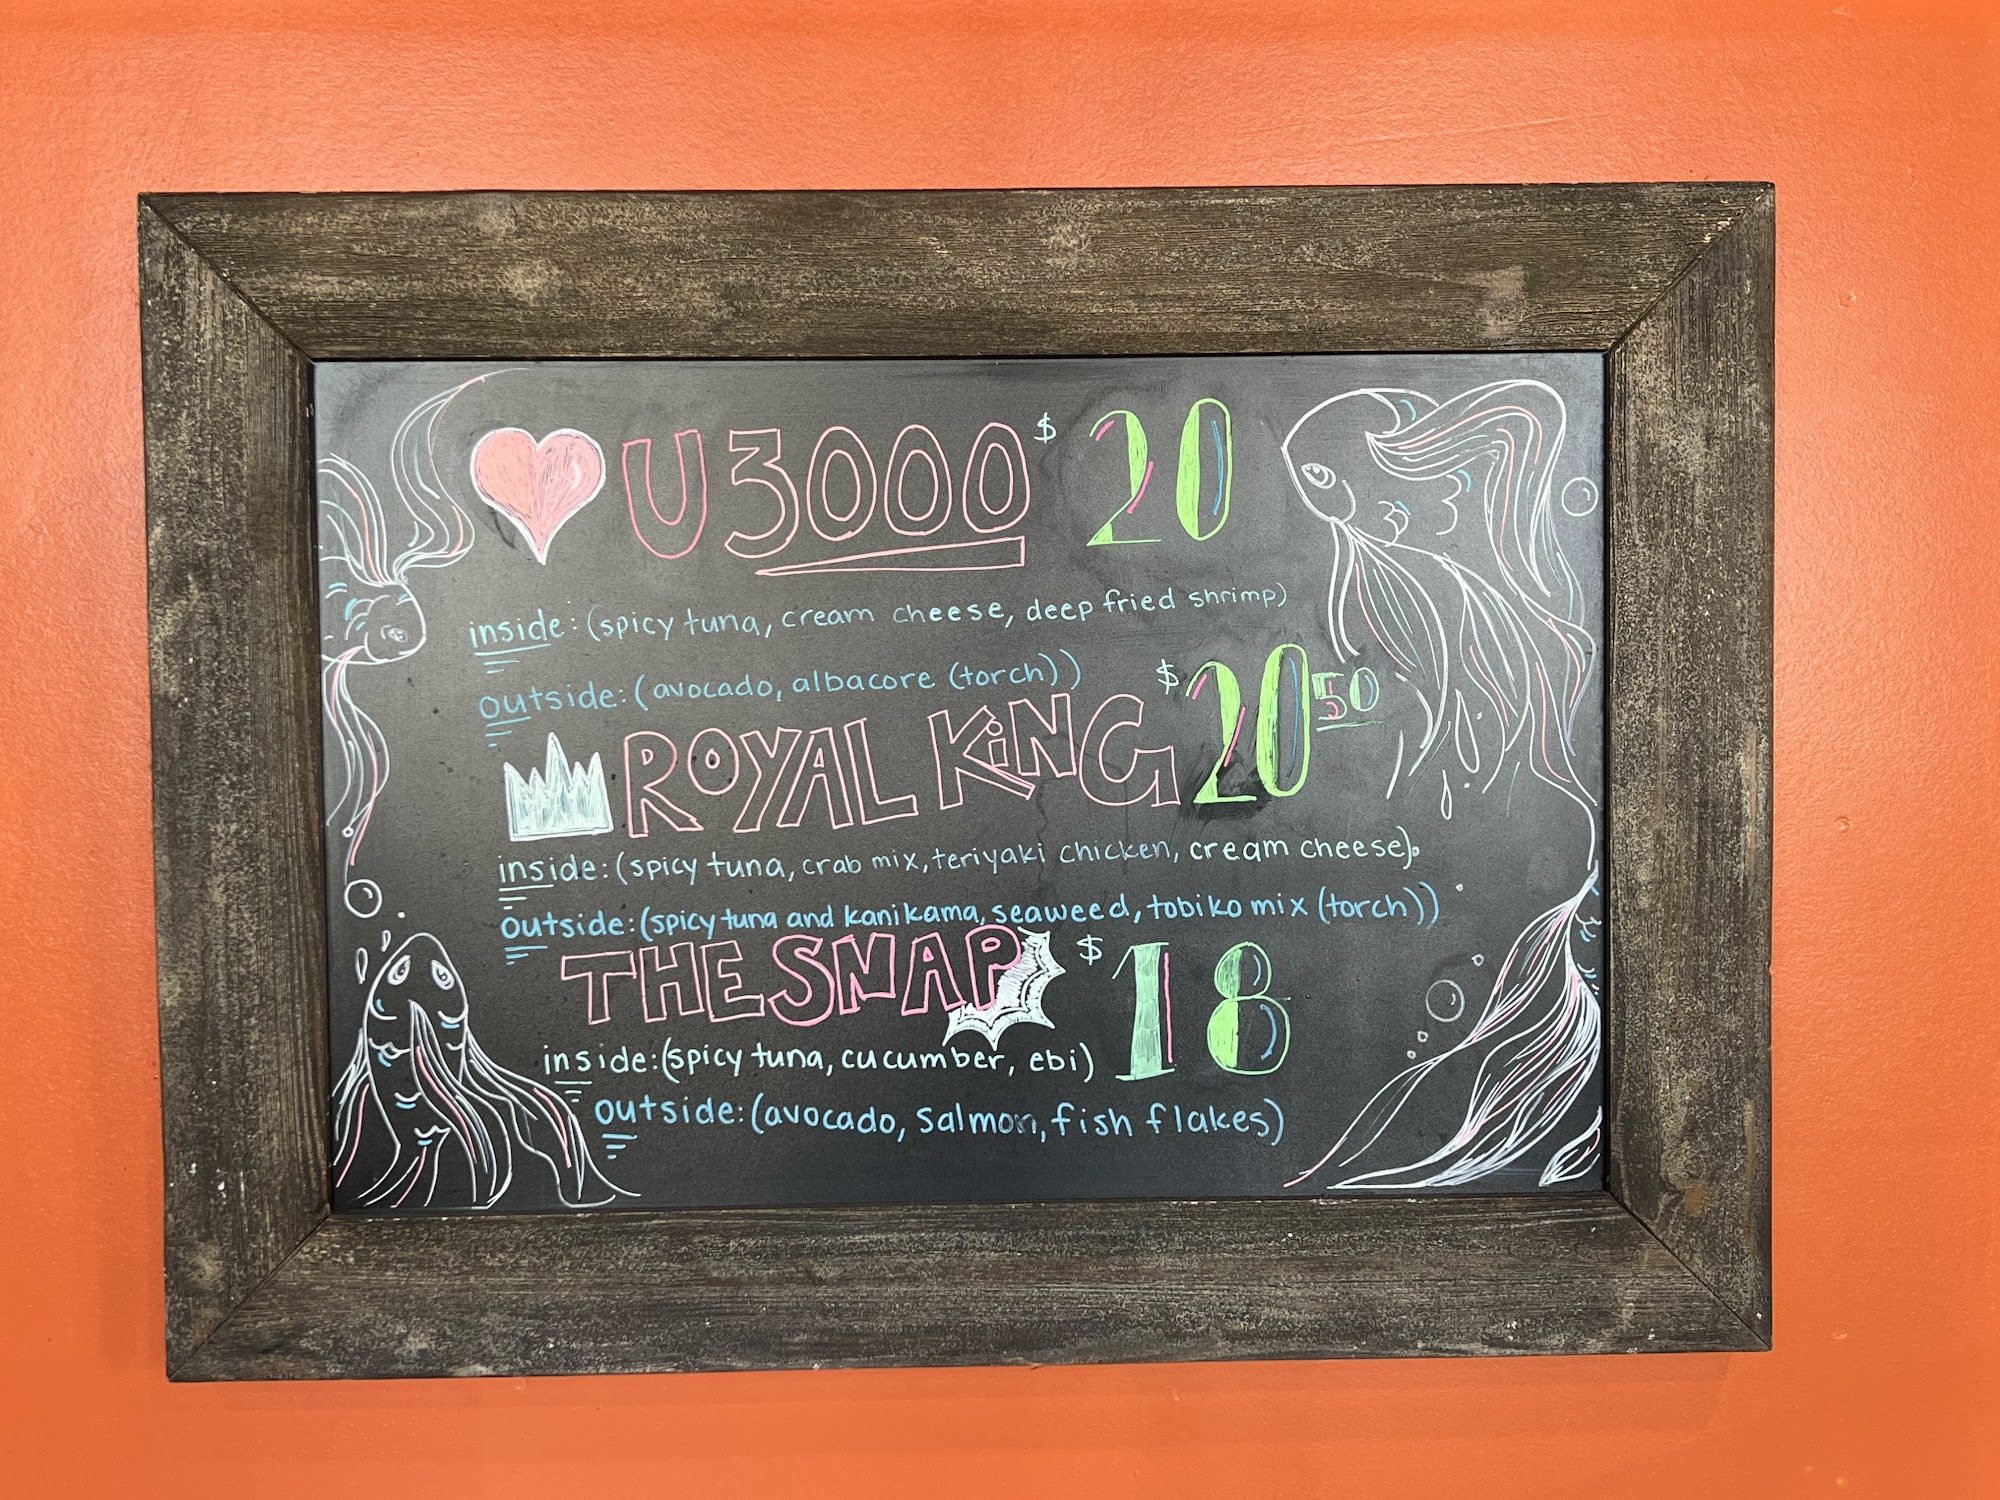 U 3000 $20
inside: (spicy tuna, cream cheese, deep fried shrimp)
outside: (avocado, albacore (torch))
ROYAL KiNG $20 50
inside: (spicy tuna, crab mix, teriyaki chicken, cream cheese).
outside: (spicy tuna and kanikama, seaweed, tobiko mix (torch))
THE SNAP $18
inside: (spicy tuna, cucumber, ebi)
outside: (avocado, salmon, fish flakes)